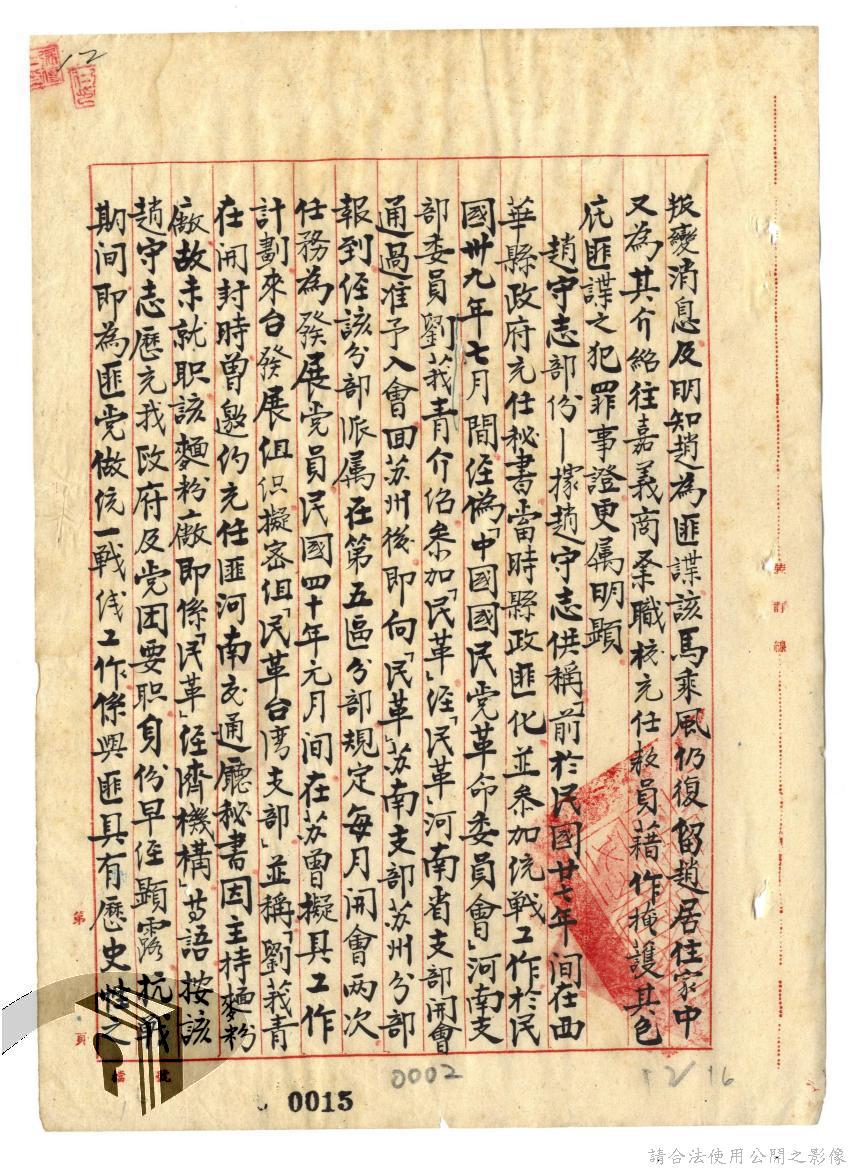 12
叛變消息及明知趙為匪諜該馬乘風仍復留趙居住家中
又為其介紹往嘉義商業職校充任教員藉作掩護其包
庇匪諜之犯罪事證更属明顯
趙守志部份—據趙守志供稱「前於民國廿七年间在西
華縣政府充任秘書當時縣政匪化並参加統戦工作於民
國卅九年七月間经偽「中國國民党革命委員會」河南支
部委員劉莪青介绍参加「民革」经「民革」河南省支部開會
通過准予入會回苏州後即向「民革」苏南支部苏州分部
報到经該分部派属在第五區分部規定每月開會两次
任務為發展党員民國四十年元月间在苏曾擬具工作
計劃來台發展组织擬密组「民革台湾支部」並稱「劉莪青
在開封時曾邀约充任匪河南交通廳秘書因主持麵粉
廠故未就职該麵粉廠即係「民革」经濟機構」等語按該
趙守志歷充我政府及党团要职身份早经顕露抗戦
期间即為匪党做统一戦线工作係與匪具有歷史性之
裝訂線
第
頁
檔號
0002
12/16
0015
請合法使用公開之影像